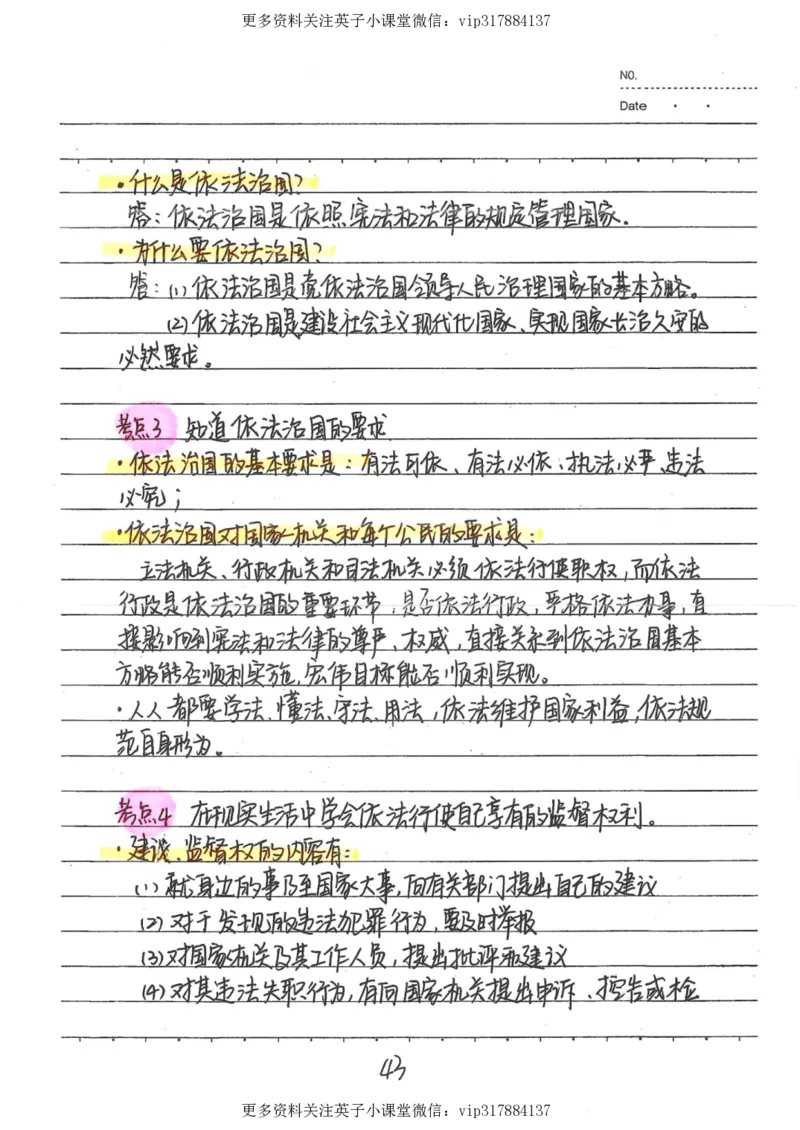 更多资料关注英子小课堂微信：vip317884137
NO.
Date
·什么是依法治国？
答：依法治国是依照宪法和法律的规定管理国家.
·为什么要依法治国？
答：(1)依法治国是党依法治国领导人民治理国家的基本方略。
(2)依法治国是建设社会主义现代化国家、实现国家长治久安的
必然要求。
考点3 知道依法治国的要求
·依法治国的基本要求是：有法可依、有法必依、执法必严、违法
必究；
·依法治国对国家机关和每个公民的要求是：
立法机关、行政机关和司法机关必须依法行使职权，而依法
行政是依法治国的重要环节，是否依法行政，严格依法办事，直
接影响到宪法和法律的尊严、权威，直接关系到依法治国基本
方略能否顺利实施，宏伟目标能否顺利实现。
·人人都要学法、懂法、守法、用法，依法维护国家利益，依法规
范自身形为。
考点4 在现实生活中学会依法行使自己享有的监督权利。
·建议、监督权的内容有：
(1)就身边的事乃至国家大事，向有关部门提出自己的建议
(2)对于发现的违法犯罪行为，要及时举报
(3)对国家机关及其工作人员，提出批评和建议
(4)对其违法失职行为，有向国家机关提出申诉、控告或检
43
更多资料关注英子小课堂微信：vip317884137